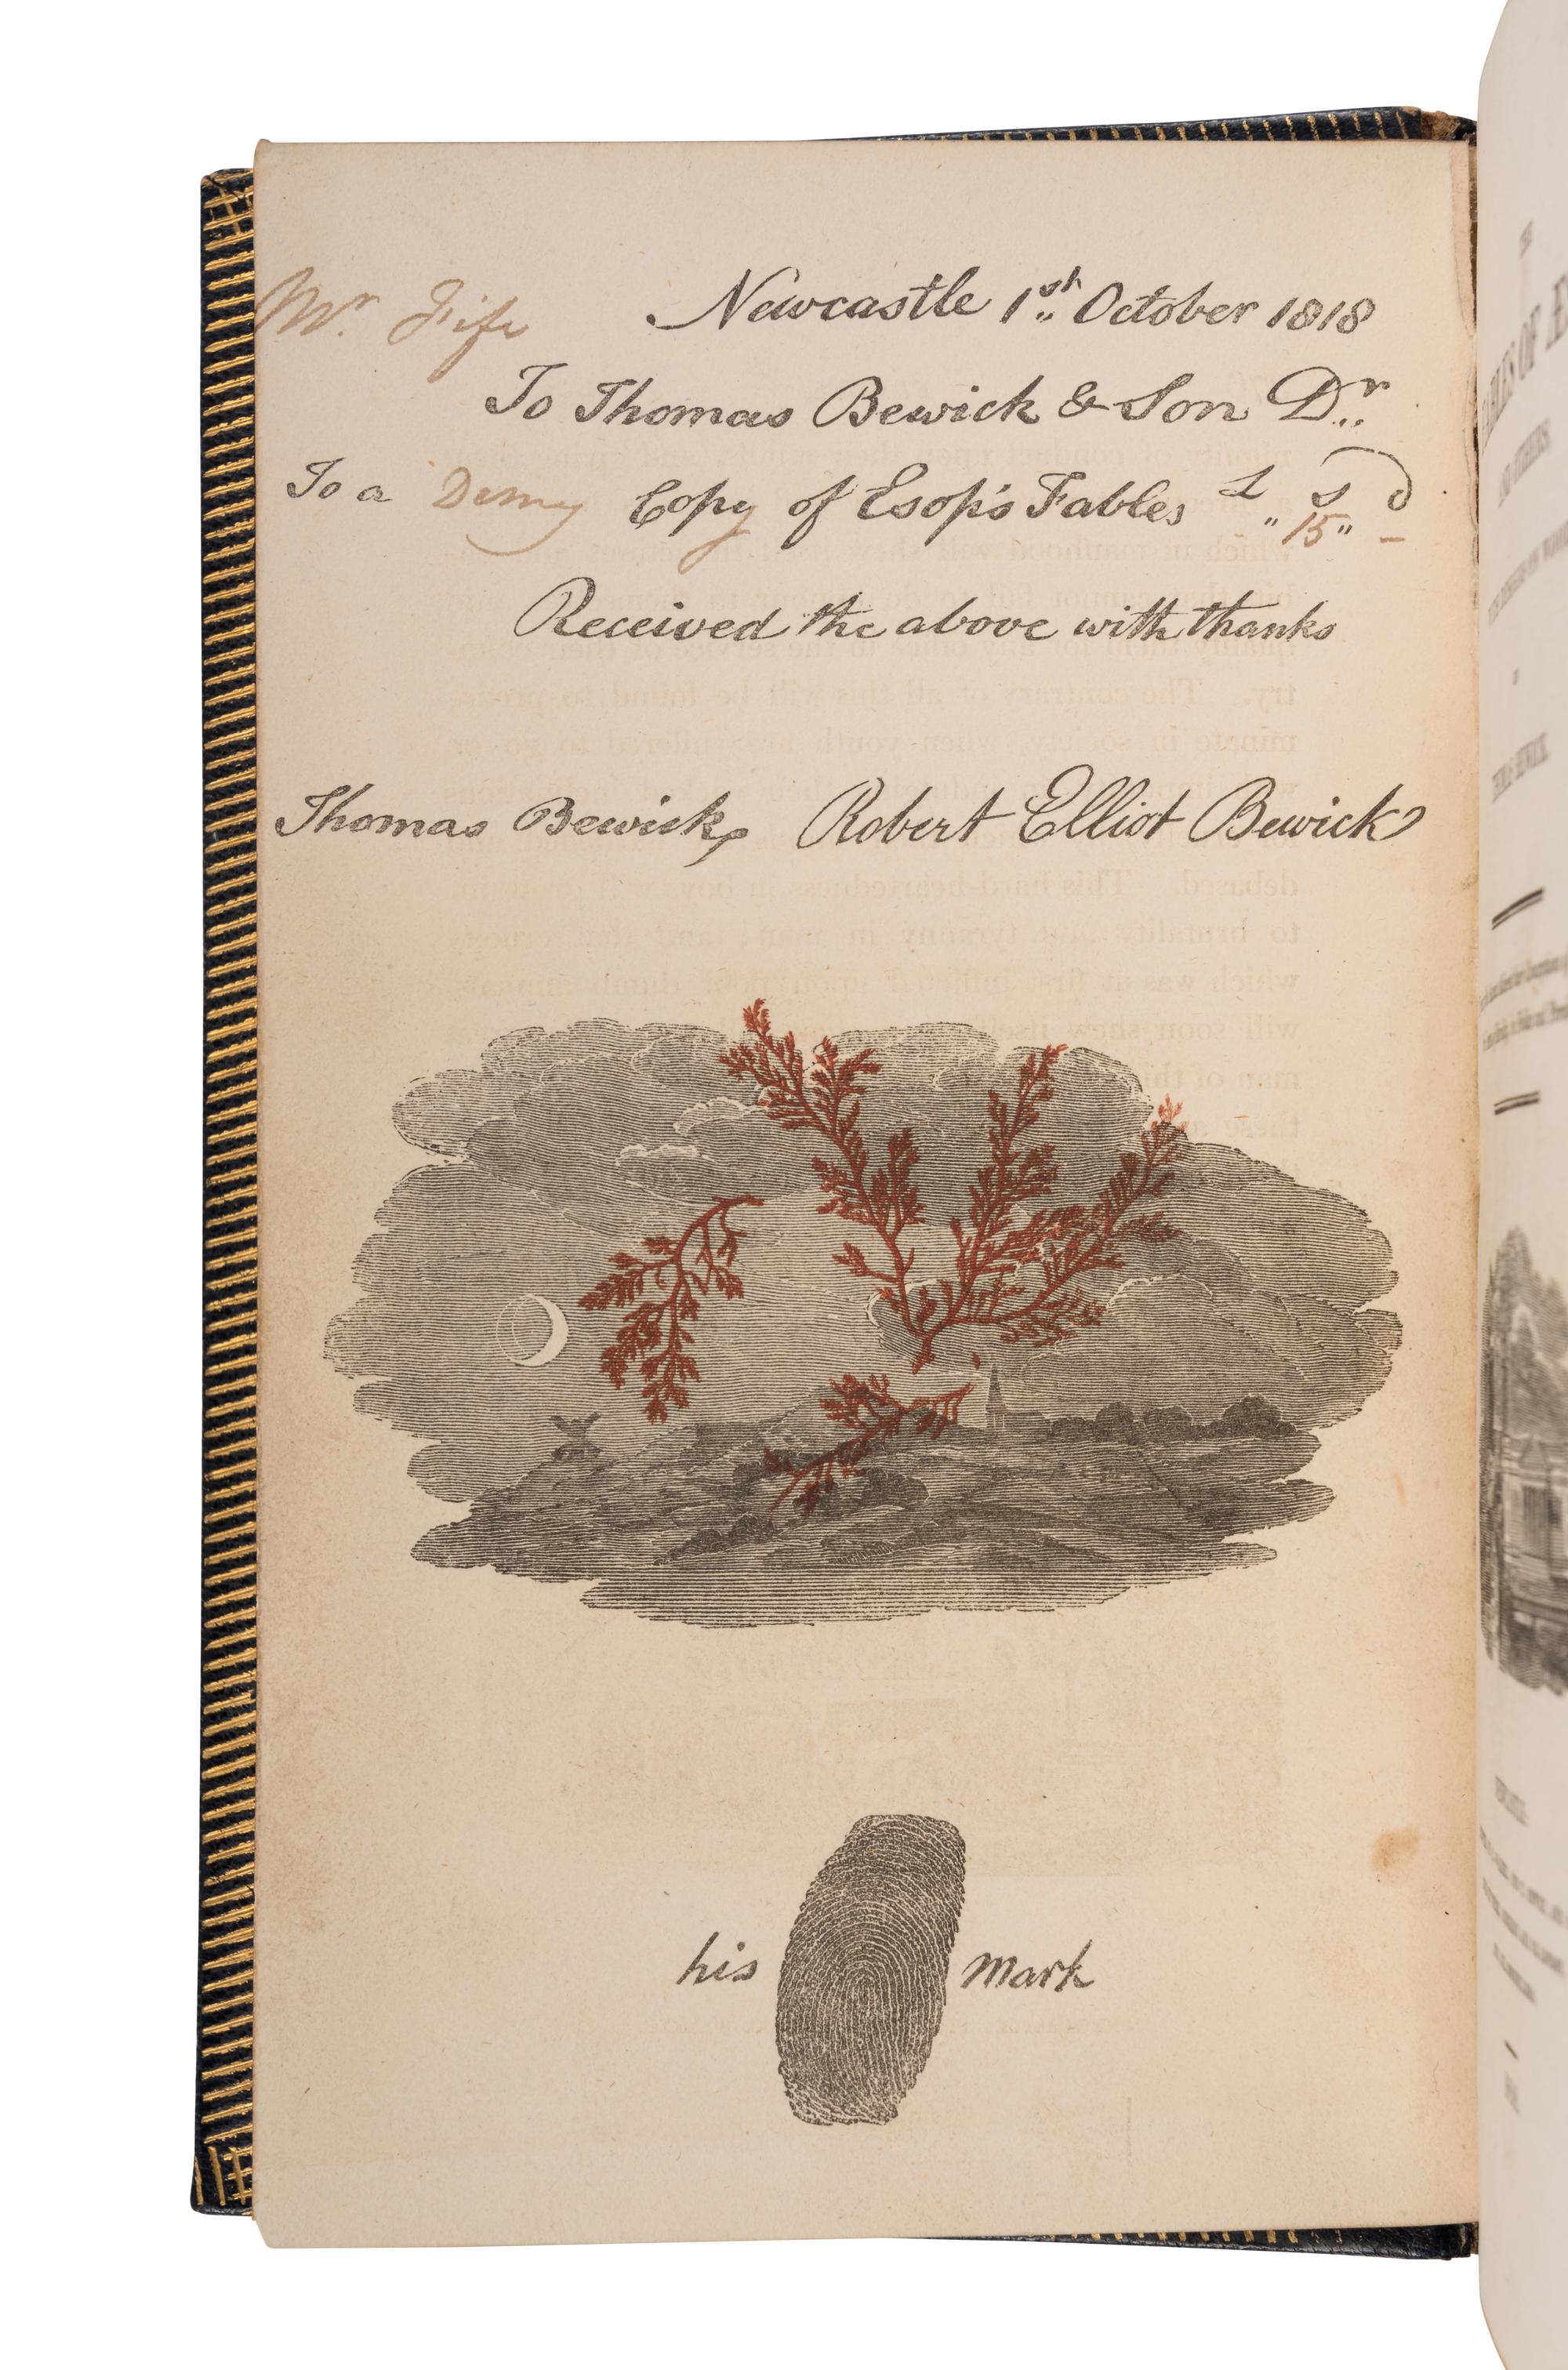 Mr. Fife Newcastle 1st October 1818
To Thomas Bewick & Son Dr
To a Demy Copy of Esop's Fables £ s d
" 15 " -
Received the above with thanks
Thomas Bewick, Robert Elliot Bewick
his mark